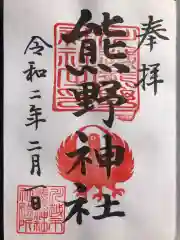 奉拝
熊野神社
令和二年二月一日